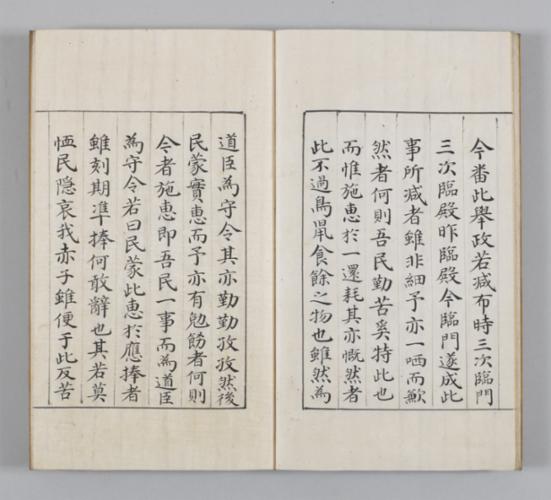 今番此舉政若减布時三次臨門
三次臨殿昨臨殿今臨門遂成此
事所减者雖非細予亦一哂而歎
然者何則吾民勤苦奚特此也
而惟施惠於一還耗其亦慨然者
此不過鳥鼠食餘之物也雖然為
道臣為守令其亦勤勤孜孜然後
民蒙實惠而予亦有勉飭者何則
令者施惠即吾民一事而為道臣
為守令若曰民蒙此惠於應捧者
雖刻期準捧何敢辭也其若莫
恤民隱哀我赤子雖便于此反苦